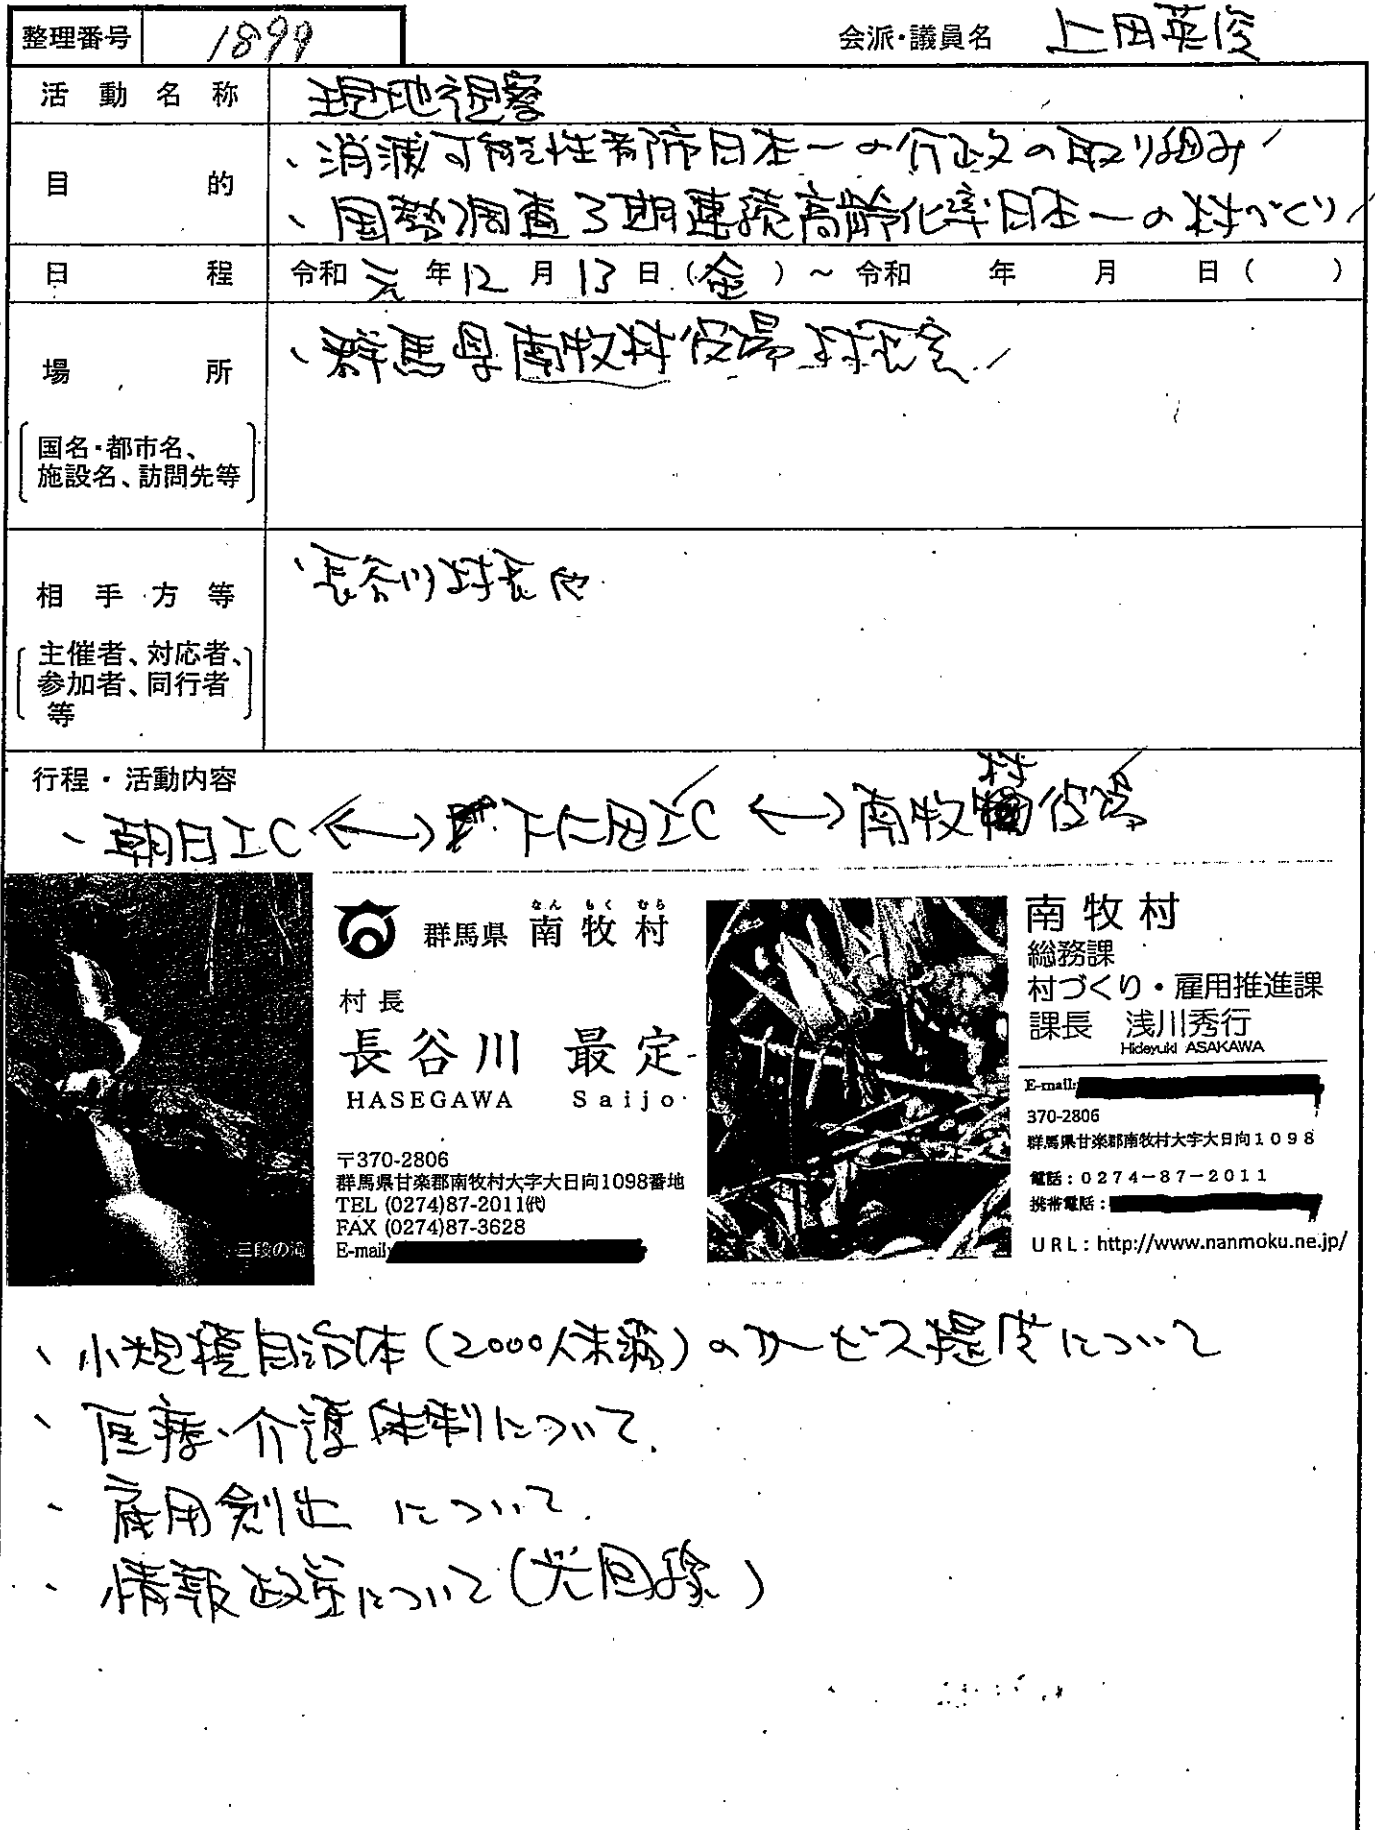 整理番号 1899 会派・議員名 上田英俊
活動名称 現地視察
目的 、消滅可能性都市日本一の行政の取り組み
、国勢調査3期連続高齢化率日本一の村づくり
日程 令和元年12月13日(金)～令和 年 月 日( )
場所 、群馬県南牧村役場 村長室
国名・都市名、
施設名、訪問先等
相手方等 、長谷川村長他
主催者、対応者、
参加者、同行者
等
行程・活動内容
、朝日IC ←→ 下仁田IC ←→ 南牧村役場
三段の滝
なんもくむら
群馬県 南牧村
村長
長谷川 最定
HASEGAWA Saijo
〒370-2806
群馬県甘楽郡南牧村大字大日向1098番地
TEL (0274)87-2011㈹
FAX (0274)87-3628
E-mail:
南牧村
総務課
村づくり・雇用推進課
課長 浅川秀行
Hideyuki ASAKAWA
E-mail:
370-2806
群馬県甘楽郡南牧村大字大日向1098
電話：0274-87-2011
携帯電話：
URL：http://www.nanmoku.ne.jp/
、小規模自治体(2000人未満)のサービス提供について
、医療・介護体制について
、雇用創出 について
、情報政策について(光回線)